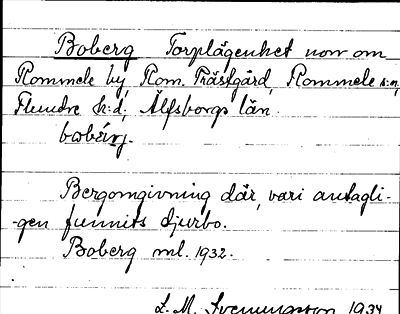 Boberg Torplägenhet norr om
Rommele by, Rom. Prästgård, Rommele s:n,
Flundre h:d, Älfsborgs län.
bobérj.
Bergomgivning där, vari antagli-
-gen funnits djurbo.
Boberg ml. 1932.
L. M. Svenungsson 1934